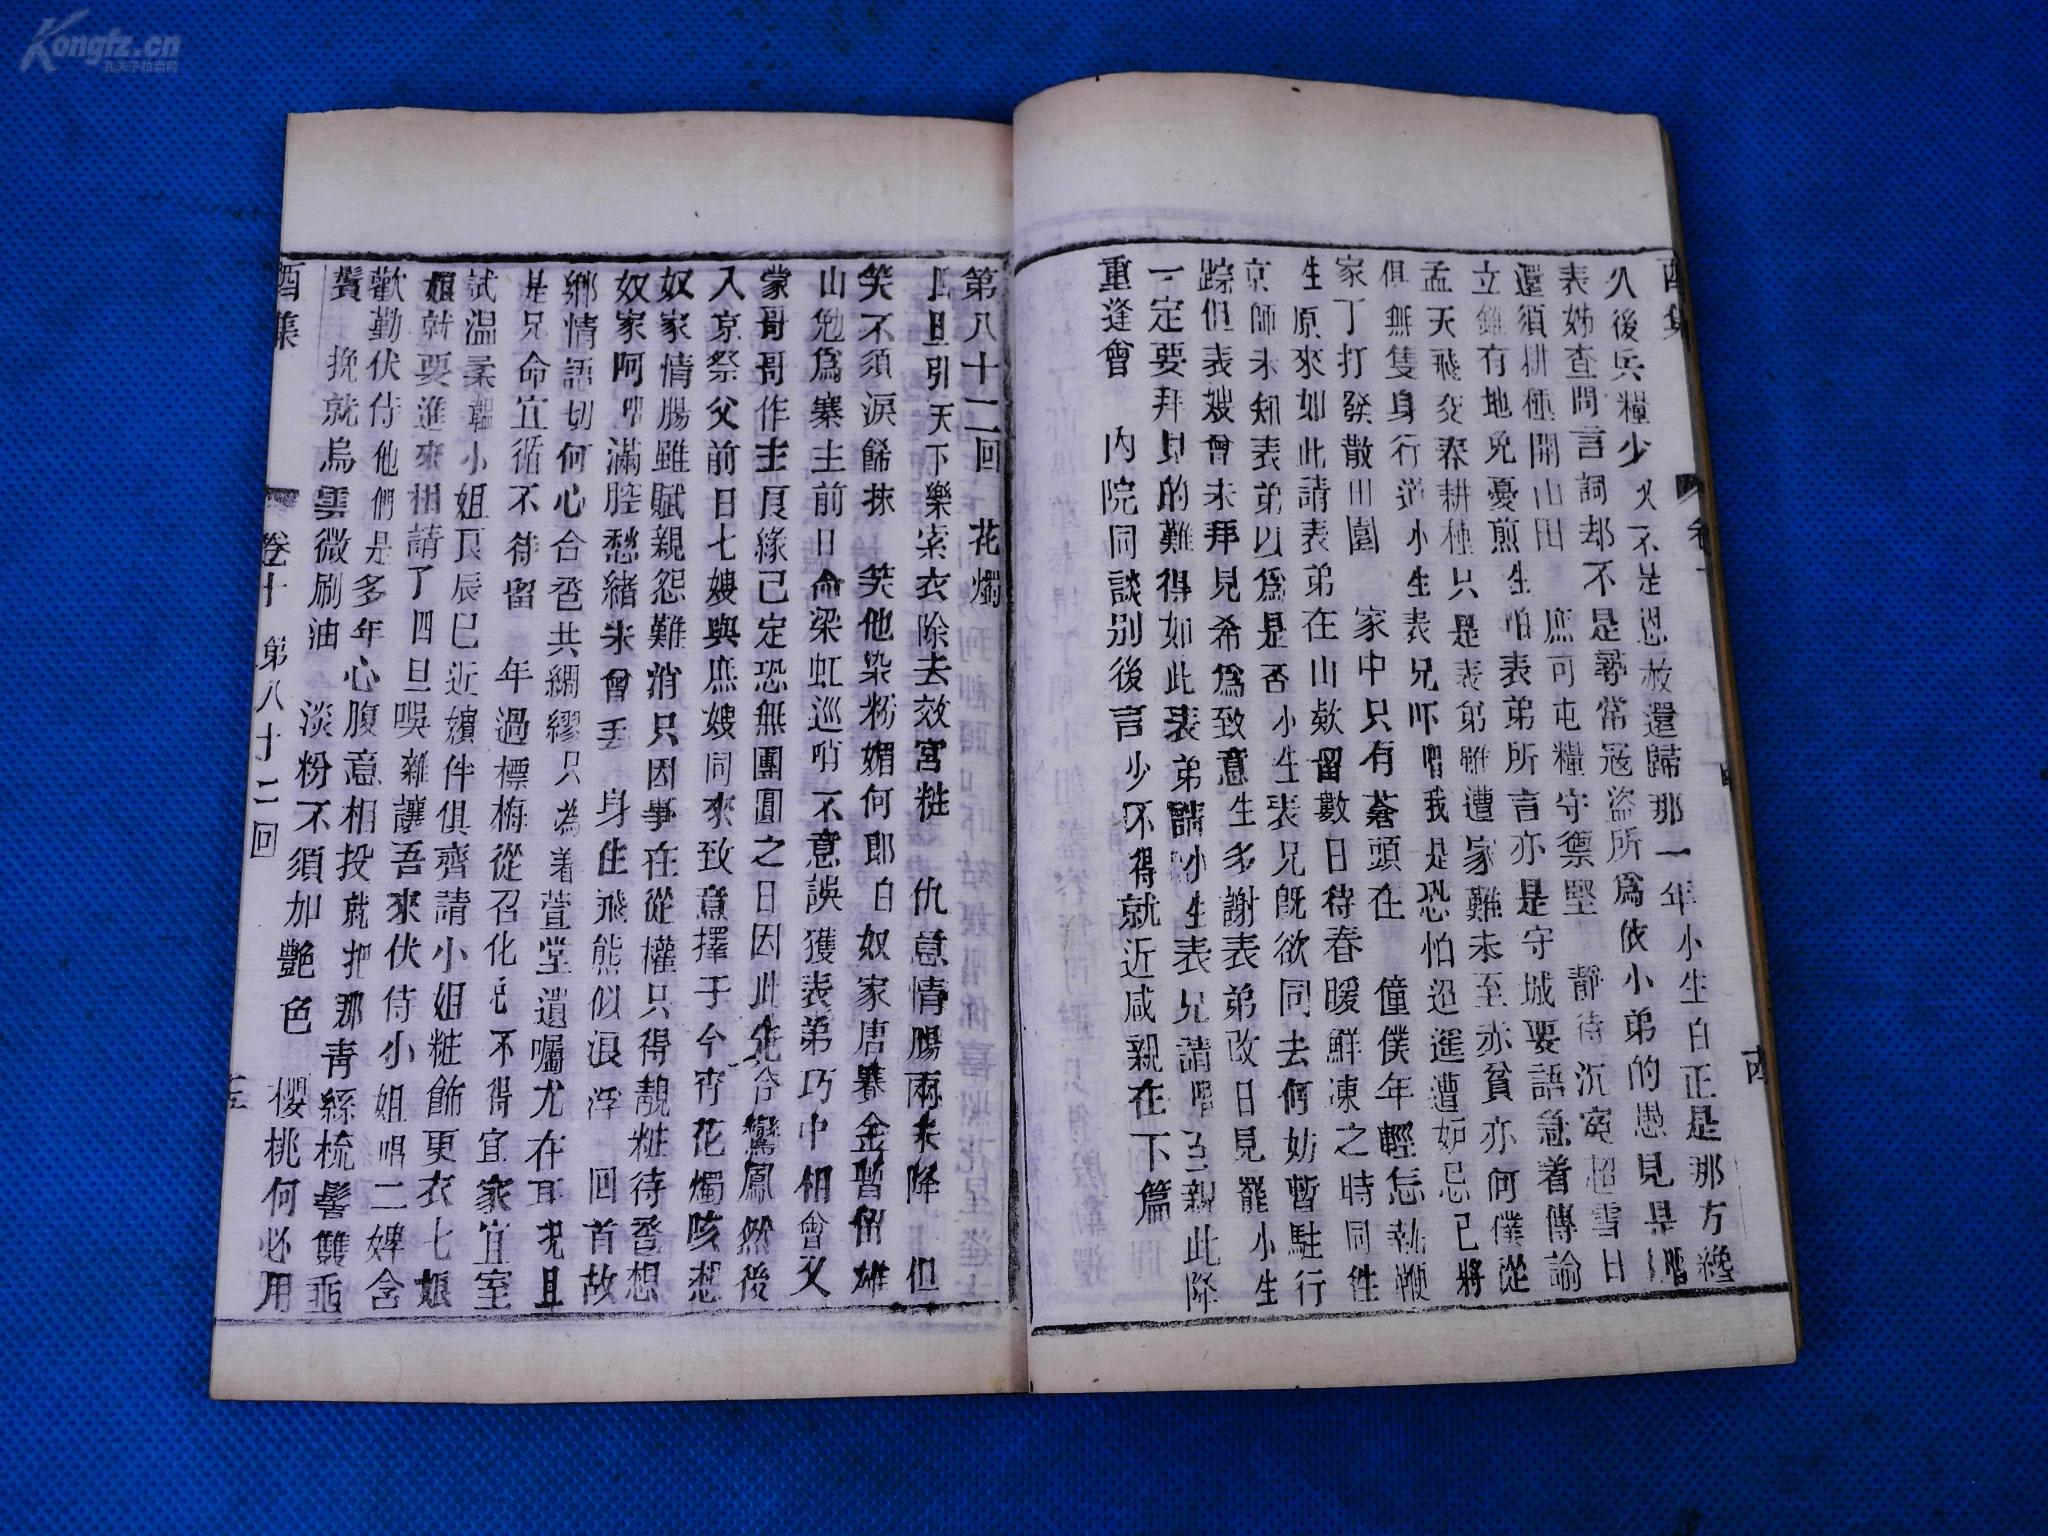 Kongfz.cn
孔夫子拍卖网
久後兵糧少 火不足恩赦還歸那一年小生白正是那方纔
表姊查問言詞却不是尋常冦盜所爲依小弟的愚見是唱
還須耕種開山田 庶可屯糧守禦堅 靜待沉寃超雪日
立錐有地免憂煎生白表弟所言亦是守城要語急着傳諭
孟天飛交春耕種只是表弟雖遭家難未至赤貧亦何僕從
俱無隻身行道小生表兄吓唱我是恐怕迍邅遭妬忌已將
家丁打發散田園 家中只有蒼頭在 僮僕年輕怎執鞭
生原來如此請表弟在山欵留數日待春暖鮮凍之時同徃
京師未知表弟以爲是否小生表兄旣欲同去何妨暫駐行
踪但表嫂曾未拜見希爲致意生多謝表弟改日見罷小生
一定要拜見的難得如此表弟請小生表兄請唱至親此降
重逢會 內院同談別後言少不得就近咸親在下篇
第八十二回 花燭
上旦引天下樂索衣除去效宮粧 仇意情腸兩未降 但
笑不須淚餙抹 笑他染粉媚何郎白奴家唐賽金暫留雄
山勉爲寨主前日命梁虹巡哨不意誤獲表弟巧中相會又
蒙哥哥作主良緣已定恐無團圓之日因此先合鸞鳳然後
入京祭父前日七嫂與庶嫂同來致意擇于今宵花燭咳想
奴家情腸雖賦親怨難消只因事在從權只得靚粧待巹想
奴家阿唱滿腔愁緒未曾丟 身住飛熊似浪浮 回首故
鄉情語切何心合巹共綢繆只為着萱堂遺囑尤在耳况且
是兄命宜循不待留 年過摽梅從召化也不得宜家宜室
試温柔韞小姐良辰已近嬪伴俱齊請小姐粧飾更衣七娘
娘就要進來相請了四旦吳雜讓吾來伏侍小姐唱二婢含
歡勤伏侍他們是多年心腹意相投就把那靑絲梳髻雙垂
鬢 挽就烏雲微刷油 淡粉不須加艷色 櫻桃何必用
酉集 卷十 第八十二回